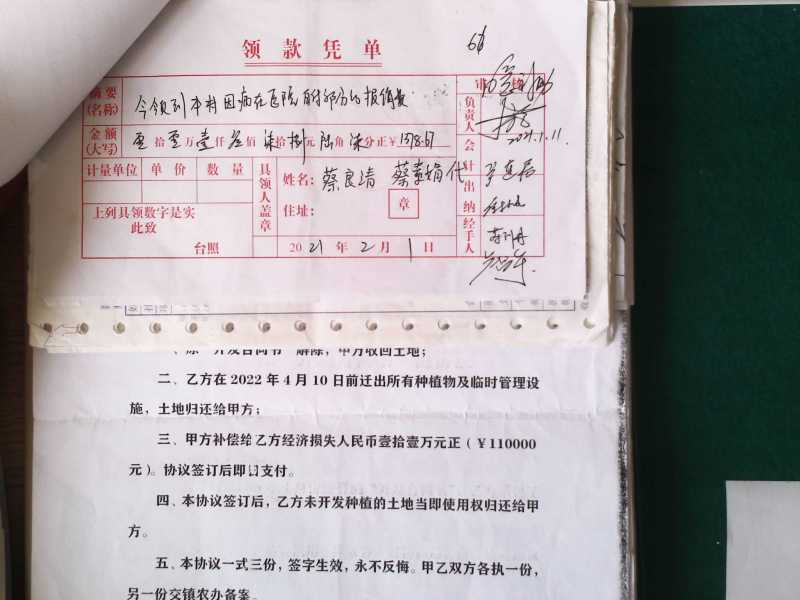 领款凭单
61
摘要
(名称)
今领到本村因病在医院自付部分的报销费
审核
金额
(大写)
零拾零万壹仟叁佰柒拾捌元陆角柒分正￥1378.67
负责人
2021.1.11
计量单位 单价 数量
具领人盖章
姓名：蔡良清 蔡素娟代
住址：
章
会计
出纳
经手人
上列具领数字是实
此致
台照
2021年2月1日
、原 开发合同书 解除，甲方收回土地；
二、乙方在2022年4月10日前迁出所有种植物及临时管理设
施，土地归还给甲方；
三、甲方补偿给乙方经济损失人民币壹拾壹万元正（￥110000
元）。协议签订后即日支付。
四、本协议签订后，乙方未开发种植的土地当即使用权归还给甲
方。
五、本协议一式三份，签字生效，永不反悔。甲乙双方各执一份，
另一份交镇农办备案。